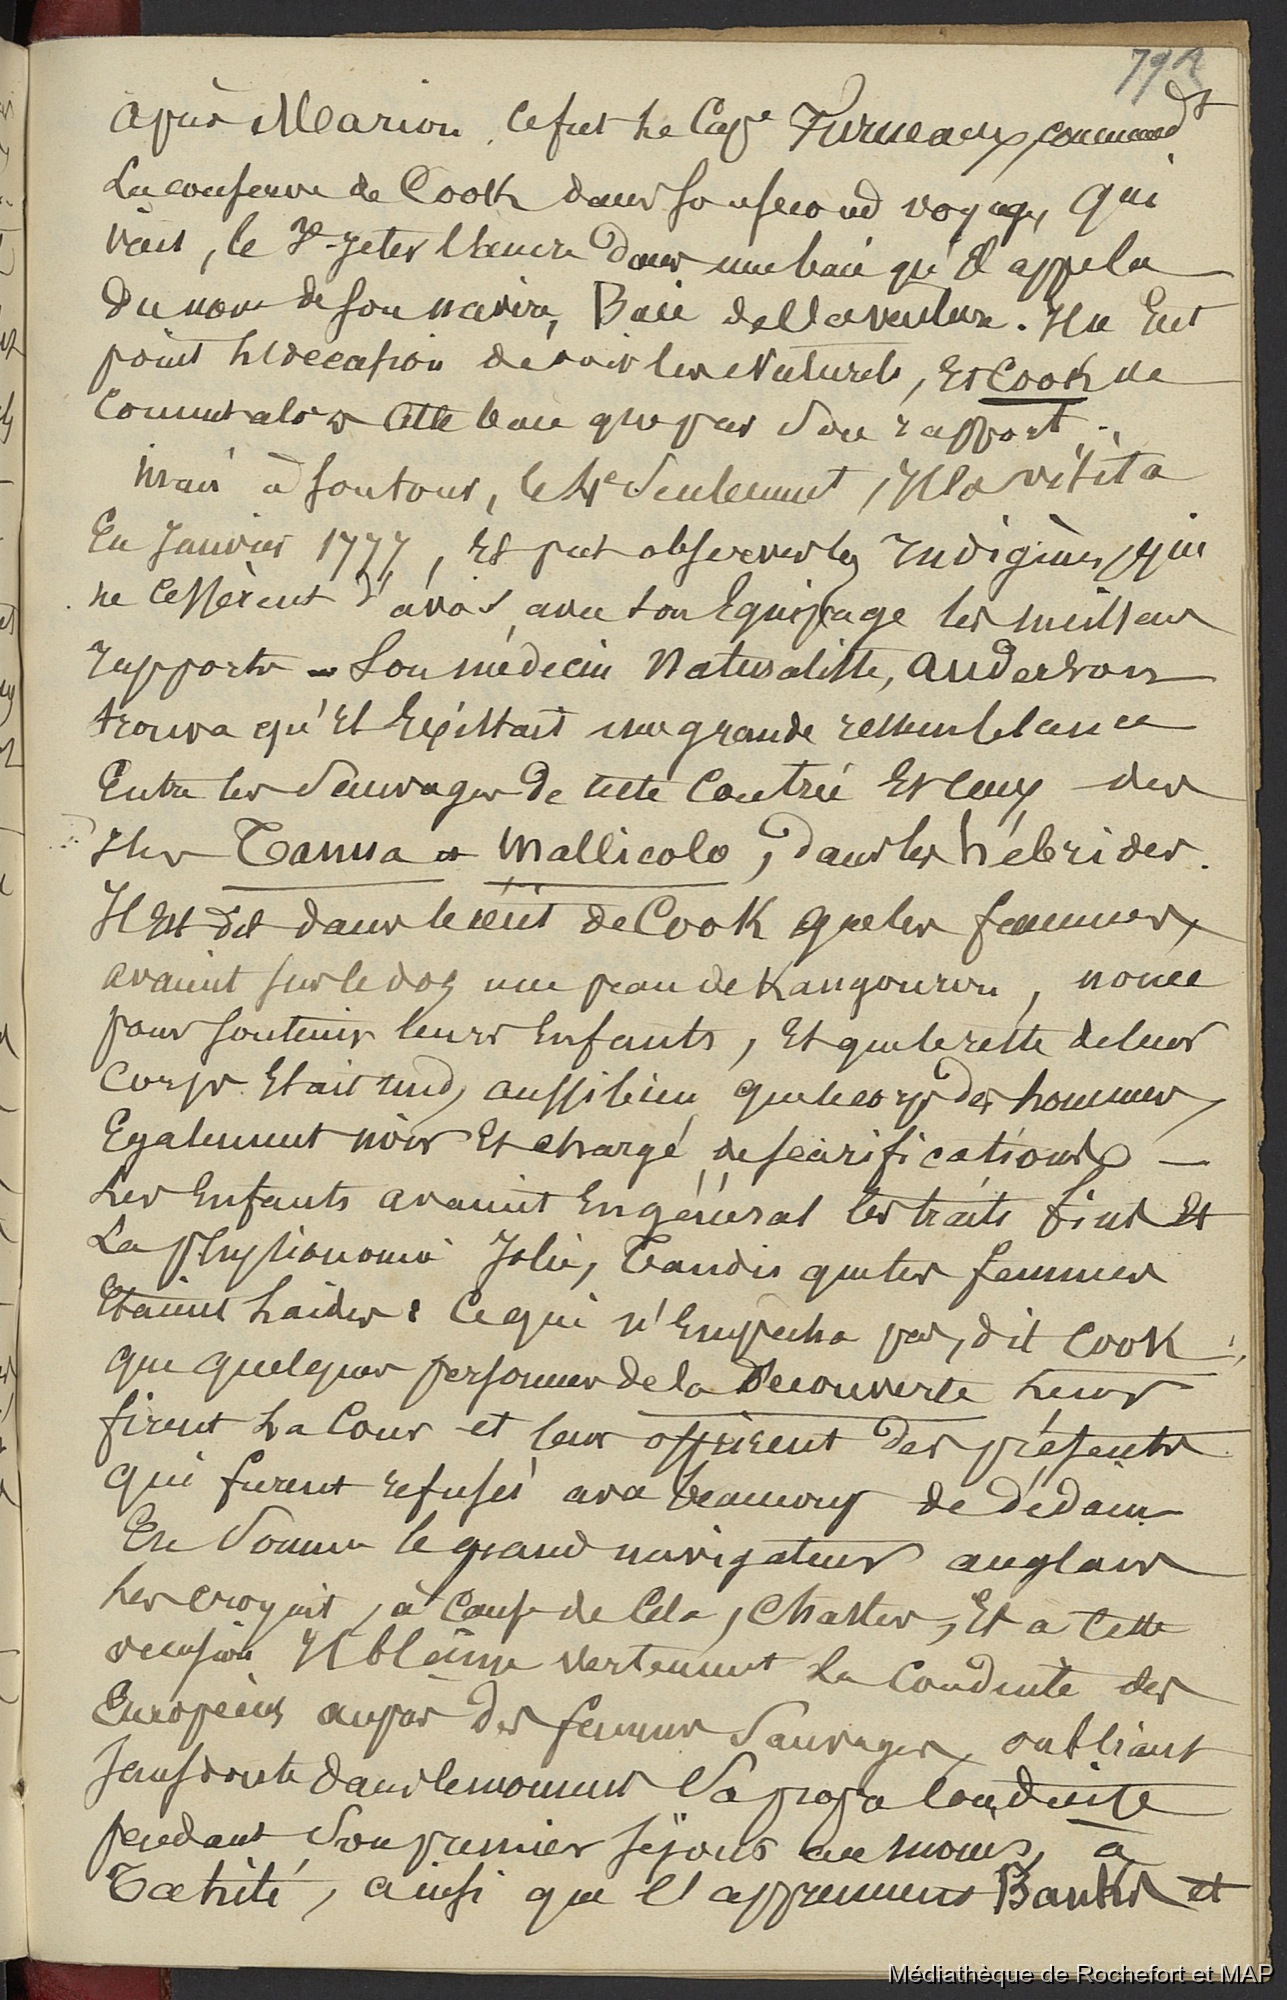 79 R
Après Marion, ce fut Le Cape Furneaux, commandt
La conserve de Cook dans son second voyage, qui
vint, le 2e jeter l'ancre dans une baie qu'il appela
du nom de son navire, Baie de l'aventure. Il n'eut
point L'occasion de voir les Naturels, Et Cook ne
connut alors cette baie que par Son rapport.
Mais à son tour, le 4e Seulement, Il la visita
En Janvier 1777, Et put observer les Indigènes, qui
ne cessèrent d'avoir avec son Equipage les meilleurs
rapports - Son médecin Naturaliste, anderson
trouva qu'il Existait une grande ressemblance
Entre les Sauvages de cette Contrée Et Ceux des
Iles Tanna et Mallicolo, dans les hébrides.
Il Est dit dans le récit de Cook que les femmes,
avaient sur le dos une peau de Kangourou, nouée
pour soutenir leurs Enfants, Et que le reste de leur
Corps Etait nud, aussi bien que le corps des hommes,
Egalement noir Et chargé de scarifications -
Les Enfants avaient En général les traits fins Et
La physionomie Jolie, Tandis que les femmes
Etaient Laides : Ce qui n'Empêcha pas, dit Cook,
que quelques personnes de la Découverte Leur
firent La Cour et leur offrirent des présents
qui furent refusés avec beaucoup de dédain
En Somme le grand navigateur anglais
Les croyait, à Cause de Cela, Chastes, Et à Cette
occasion Il blâme vertement La Conduite des
Européens auprès des femmes Sauvages, oubliant
sans doute dans le moment Sa propre Conduite
pendant Son premier séjour au moins, à
Taïti, ainsi que l'apprennent Banks et
Médiathèque de Rochefort et MAP